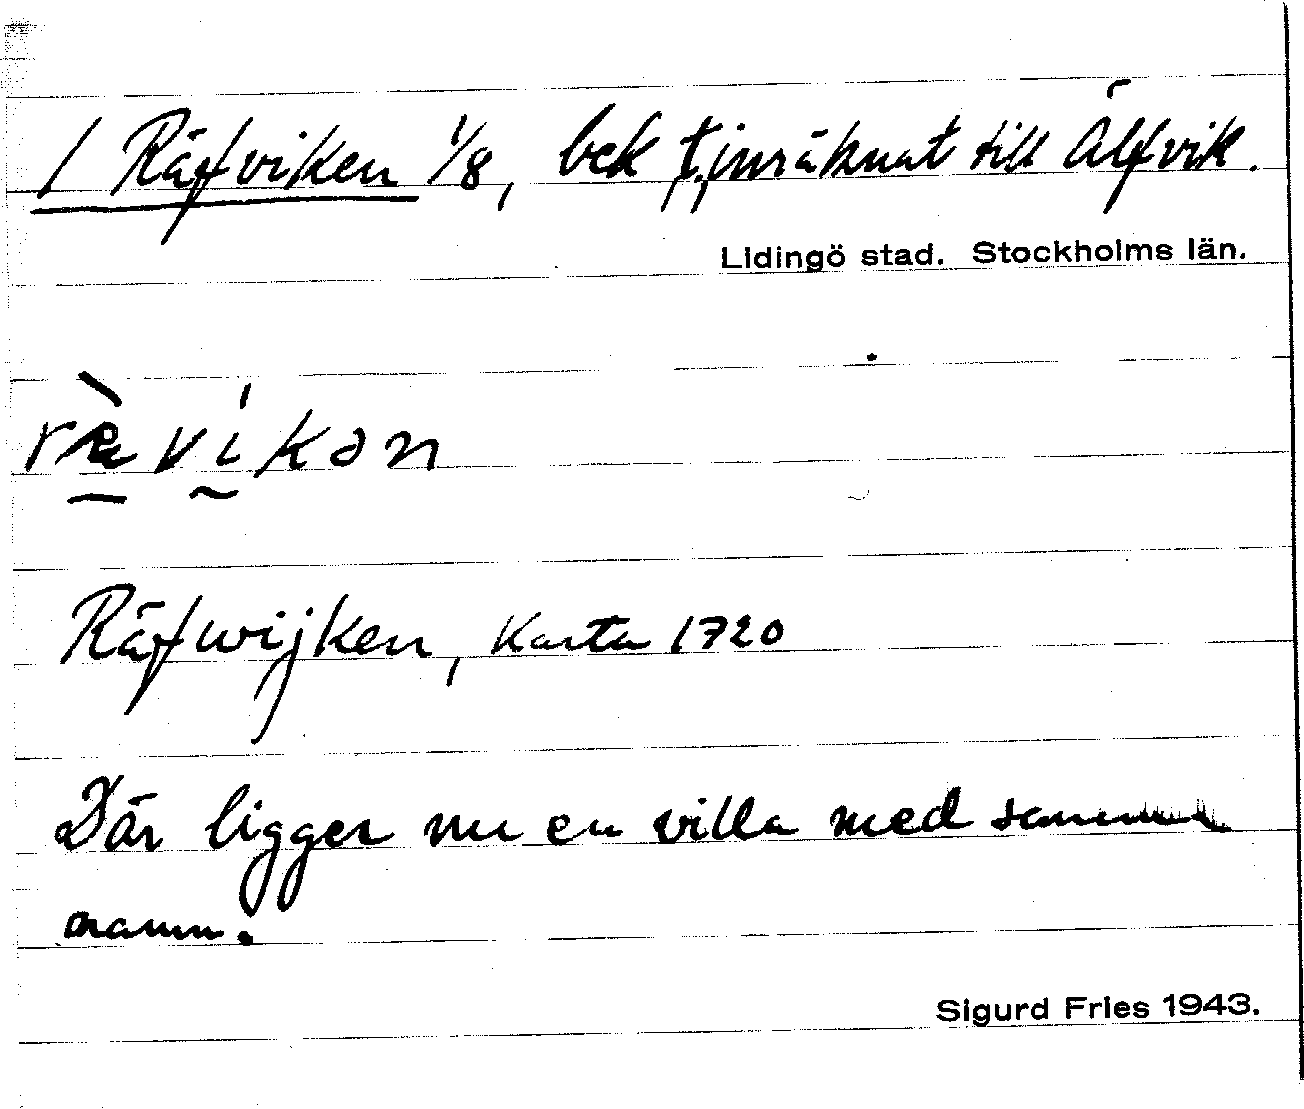 / Räfviken 1/8, bek f. inräknat till Älfvik.
Lidingö stad. Stockholms län.
rævikən
Räfwijken, Karta 1720
Där ligger nu en villa med samma
namn.
Sigurd Fries 1943.